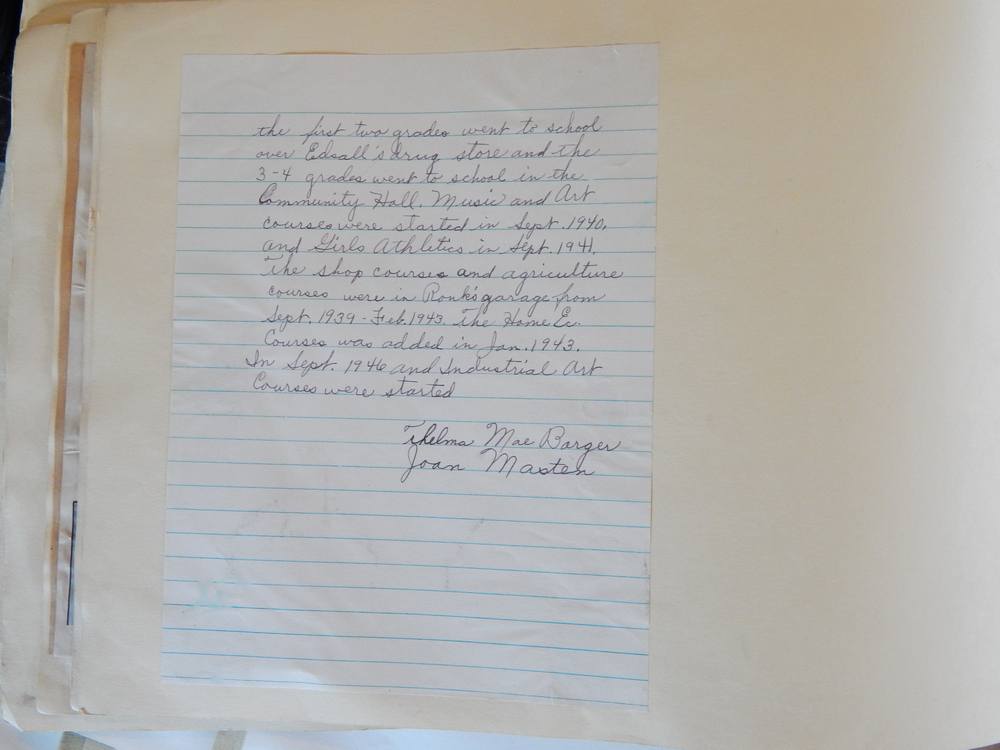 the first two grades went to school
over Edsall's drug store and the
3-4 grades went to school in the
Community Hall. Music and Art
courses were started in Sept. 1940,
and Girls Athletics in Sept. 1941.
The shop courses and agriculture
courses were in Ronk's garage from
Sept. 1939 - Feb. 1943. The Home Ec.
Courses was added in Jan. 1943.
In Sept. 1946 and Industrial Art
Courses were started
Thelma Mae Barger
Joan Masten